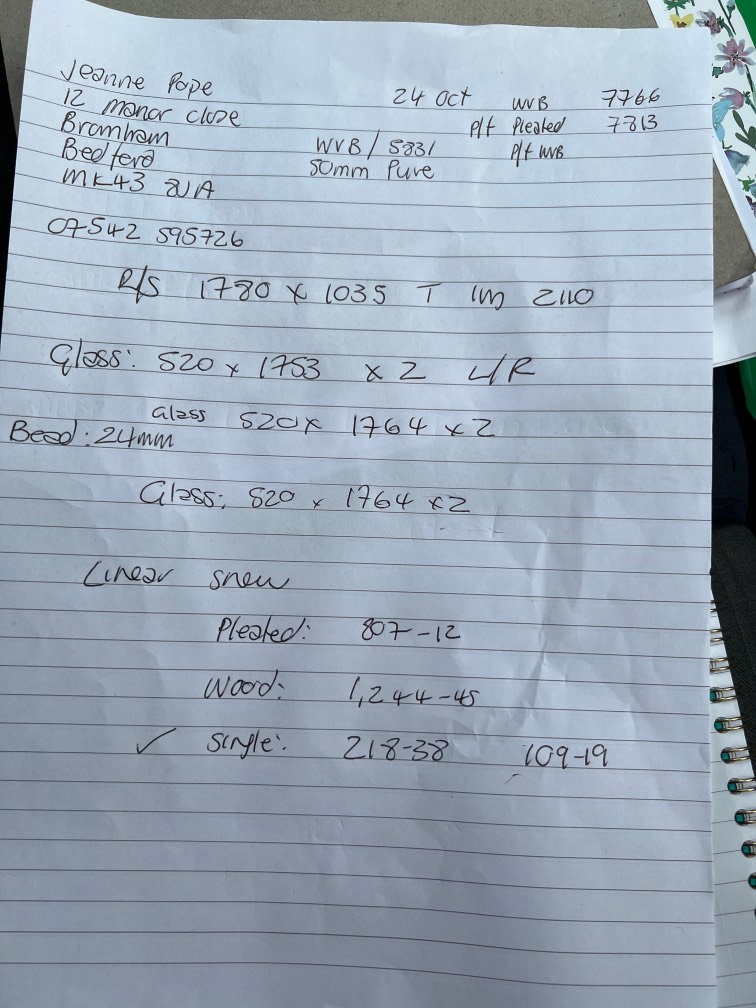 Jeanne Pope 24 Oct WVB 7766
12 manor close P/f Pleated 7813
Bromham WVB / 5831 P/f WVB
Bedford 50mm Pure
MK43
07542 595726
R/S 1780 x 1035 T 1m 2110
Glass: 520 x 1753 x 2 L/R
Glass 520 x 1764 x 2
Bead: 24mm
Glass: 520 x 1764 x 2
Linear snow
Pleated: 807-12
Wood: 1,244-45
✓ Single: 218-38 109-19